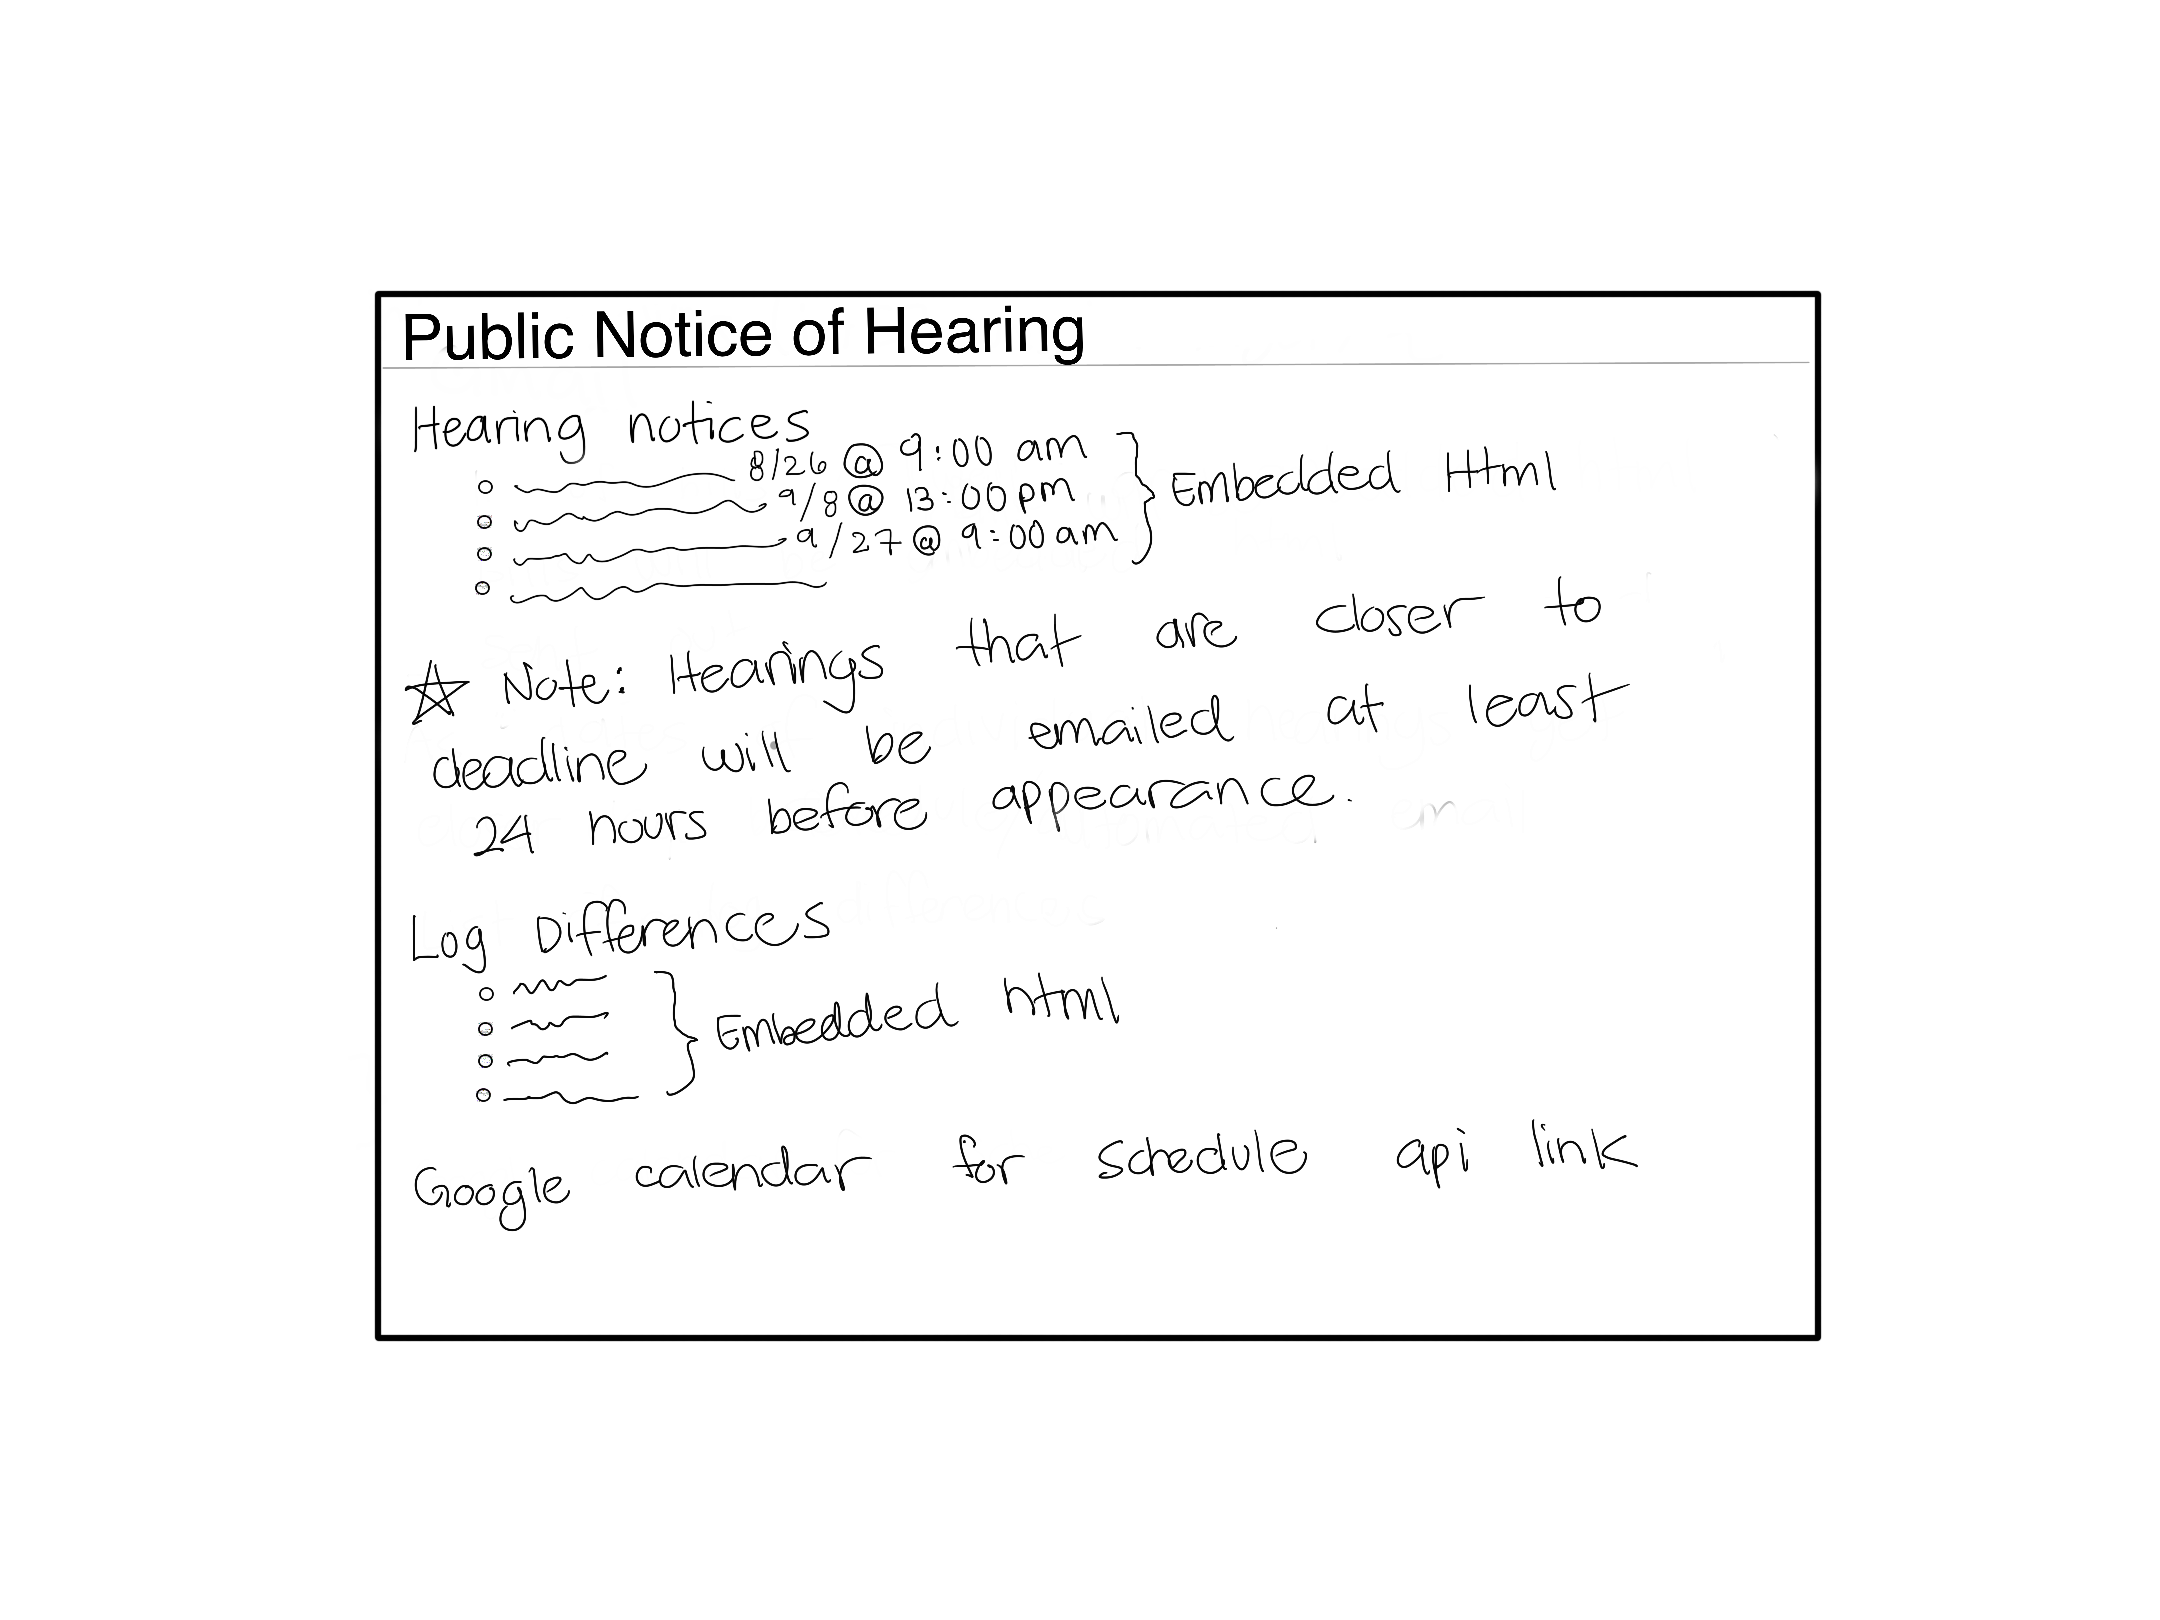 Public Notice of Hearing
Hearing notices
8/26 @ 9:00 am
9/8 @ 13:00 pm
9/27 @ 9:00 am
Embedded Html
Note: Hearings that are closer to
deadline will be emailed at least
24 hours before appearance.
Log Differences
Embedded html
Google calendar for schedule api link